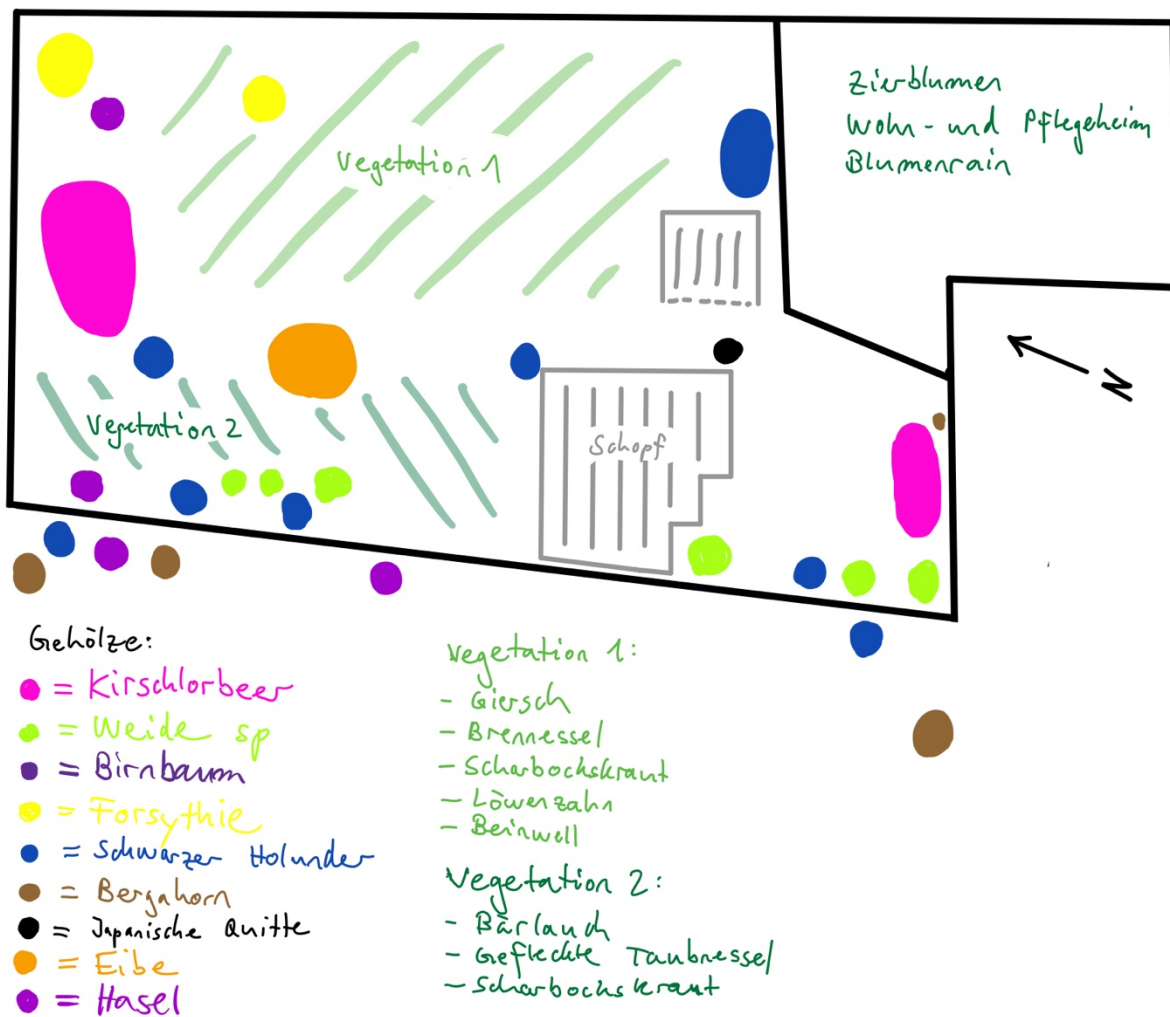 Zierblumen
Wohn- und Pflegeheim
Blumenrain
Vegetation 1
N
Schopf
Vegetation 2
Gehölze:
= Kirschlorbeer
= Weide sp
= Birnbaum
= Forsythie
= Schwarzer Holunder
= Bergahorn
= Japanische Quitte
= Eibe
= Hasel
Vegetation 1:
- Giersch
- Brennessel
- Scharbockskraut
- Löwenzahn
- Beinwell
Vegetation 2:
- Bärlauch
- Gefleckte Taubnessel
- Scharbockskraut